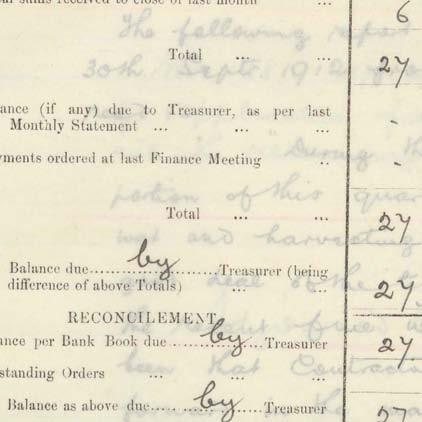 sums received to close of last month ... 6
Total ... ... 27
ance (if any) due to Treasurer, as per last
Monthly Statement ... ... ... -
yments ordered at last Finance Meeting .. -
Total ... ... 27
Balance due by Treasurer (being
difference of above Totals) ... ... 27
RECONCILEMENT
ance per Bank Book due by Treasurer 27
standing Orders ... ... ...
Balance as above due by Treasurer 27
The following report
30th Septr. 1912
During the
portion of this quar
and harvesting
deal of the
fine
been that Contracto
the